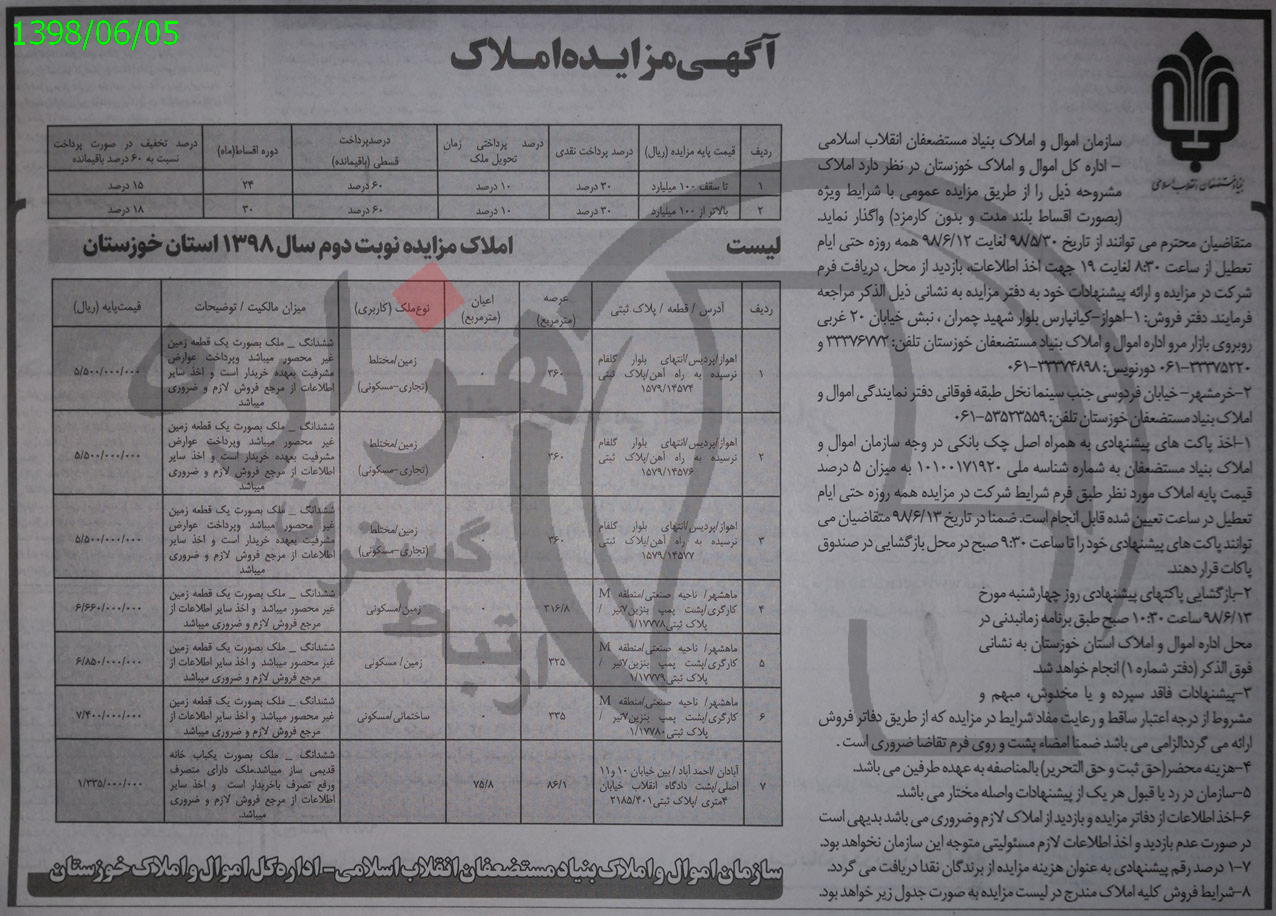 1398/06/05
آگهی مزایده املاک
بنیاد مستضعفان انقلاب اسلامی
سازمان اموال و املاک بنیاد مستضعفان انقلاب اسلامی
– اداره کل اموال و املاک خوزستان در نظر دارد املاک
مشروحه ذیل را از طریق مزایده عمومی با شرایط ویژه
(بصورت اقساط بلند مدت و بدون کارمزد) واگذار نماید.
متقاضیان محترم می توانند از تاریخ ۹۸/۵/۳۰ لغایت ۹۸/۶/۱۲ همه روزه حتی ایام
تعطیل از ساعت ۸:۳۰ لغایت ۱۹ جهت اخذ اطلاعات، بازدید از محل، دریافت فرم
شرکت در مزایده و ارائه پیشنهادات خود به دفتر مزایده به نشانی ذیل الذکر مراجعه
فرمایند. دفتر فروش: ۱–اهواز–کیانپارس بلوار شهید چمران ، نبش خیابان ۲۰ غربی
روبروی بازار مرو اداره اموال و املاک بنیاد مستضعفان خوزستان تلفن: ۳۳۳۷۶۷۷۲ و
۳۳۳۷۵۲۲۰–۰۶۱ دورنویس: ۳۳۳۷۴۸۹۸–۰۶۱
۲–خرمشهر– خیابان فردوسی جنب سینما نخل طبقه فوقانی دفتر نمایندگی اموال و
املاک بنیاد مستضعفان خوزستان تلفن: ۵۳۵۲۳۵۵۹–۰۶۱
۱–اخذ پاکت های پیشنهادی به همراه اصل چک بانکی در وجه سازمان اموال و
املاک بنیاد مستضعفان به شماره شناسه ملی ۱۰۱۰۰۱۷۱۹۲۰ به میزان ۵ درصد
قیمت پایه املاک مورد نظر طبق فرم شرایط شرکت در مزایده همه روزه حتی ایام
تعطیل در ساعت تعیین شده قابل انجام است. ضمنا در تاریخ ۹۸/۶/۱۳ متقاضیان می
توانند پاکت های پیشنهادی خود را تا ساعت ۹:۳۰ صبح در محل بازگشایی در صندوق
پاکات قرار دهند.
۲–بازگشایی پاکتهای پیشنهادی روز چهارشنبه مورخ
۹۸/۶/۱۳ ساعت ۱۰:۳۰ صبح طبق برنامه زمانبندنی در
محل اداره اموال و املاک استان خوزستان به نشانی
فوق الذکر (دفتر شماره ۱) انجام خواهد شد.
۳–پیشنهادات فاقد سپرده و یا مخدوش، مبهم و
مشروط از درجه اعتبار ساقط و رعایت مفاد شرایط در مزایده که از طریق دفاتر فروش
ارائه می گرددالزامی می باشد ضمنا امضاء پشت و روی فرم تقاضا ضروری است .
۴–هزینه محضر(حق ثبت و حق التحریر) بالمناصفه به عهده طرفین می باشد.
۵–سازمان در رد یا قبول هر یک از پیشنهادات واصله مختار می باشد.
۶–اخذ اطلاعات از دفاتر مزایده و بازدید از املاک لازم وضروری می باشد بدیهی است
در صورت عدم بازدید و اخذ اطلاعات لازم مسئولیتی متوجه این سازمان نخواهد بود.
۷–۱ درصد رقم پیشنهادی به عنوان هزینه مزایده از برندگان نقدا دریافت می گردد.
۸–شرایط فروش کلیه املاک مندرج در لیست مزایده به صورت جدول زیر خواهد بود.
ردیف قیمت پایه مزایده (ریال) درصد پرداخت نقدی درصد پرداختی زمان تحویل ملک درصدپرداخت قسطی (باقیمانده) دوره اقساط(ماه) درصد تخفیف در صورت پرداخت نسبت به ۶۰ درصد باقیمانده
۱ تا سقف ۱۰۰ میلیارد ۳۰ درصد ۱۰ درصد ۶۰ درصد ۲۴ ۱۵ درصد
۲ بالاتر از ۱۰۰ میلیارد ۳۰ درصد ۱۰ درصد ۶۰ درصد ۳۰ ۱۸ درصد
لیست املاک مزایده نوبت دوم سال ۱۳۹۸ استان خوزستان
ردیف آدرس / قطعه / پلاک ثبتی عرصه (مترمربع) اعیان (مترمربع) نوع‌ملک (کاربری) میزان مالکیت / توضیحات قیمت‌پایه (ریال)
۱ اهواز/پردیس/انتهای بلوار گلفام نرسیده به راه آهن/پلاک ثبتی ۱۵۷۹/۱۴۵۷۴ ۳۶۰ ۰ زمین/مختلط (تجاری–مسکونی) ششدانگ _ ملک بصورت یک قطعه زمین غیر محصور میباشد وپرداخت عوارض مشرفیت بعهده خریدار است و اخذ سایر اطلاعات از مرجع فروش لازم و ضروری میباشد ۵/۵۰۰/۰۰۰/۰۰۰
۲ اهواز/پردیس/انتهای بلوار گلفام نرسیده به راه آهن/پلاک ثبتی ۱۵۷۹/۱۴۵۷۶ ۳۶۰ ۰ زمین/مختلط (تجاری–مسکونی) ششدانگ _ ملک بصورت یک قطعه زمین غیر محصور میباشد وپرداخت عوارض مشرفیت بعهده خریدار است و اخذ سایر اطلاعات از مرجع فروش لازم و ضروری میباشد ۵/۵۰۰/۰۰۰/۰۰۰
۳ اهواز/پردیس/انتهای بلوار گلفام نرسیده به راه آهن/پلاک ثبتی ۱۵۷۹/۱۴۵۷۷ ۳۶۰ ۰ زمین/مختلط (تجاری–مسکونی) ششدانگ _ ملک بصورت یک قطعه زمین غیر محصور میباشد وپرداخت عوارض مشرفیت بعهده خریدار است و اخذ سایر اطلاعات از مرجع فروش لازم و ضروری میباشد ۵/۵۰۰/۰۰۰/۰۰۰
۴ ماهشهر/ ناحیه صنعتی/منطقه M کارگری/پشت پمپ بنزین۷تیر / پلاک ثبتی۱/۱۷۷۷۸ ۳۱۶/۸ ۰ زمین/مسکونی ششدانگ _ ملک بصورت یک قطعه زمین غیر محصور میباشد و اخذ سایر اطلاعات از مرجع فروش لازم و ضروری میباشد ۶/۶۶۰/۰۰۰/۰۰۰
۵ ماهشهر/ ناحیه صنعتی/منطقه M کارگری/پشت پمپ بنزین۷تیر / پلاک ثبتی۱/۱۷۷۷۹ ۳۲۵ ۰ زمین/ مسکونی ششدانگ _ ملک بصورت یک قطعه زمین غیر محصور میباشد و اخذ سایر اطلاعات از مرجع فروش لازم و ضروری میباشد ۶/۸۵۰/۰۰۰/۰۰۰
۶ ماهشهر/ ناحیه صنعتی/منطقه M کارگری/پشت پمپ بنزین۷تیر / پلاک ثبتی۱/۱۷۷۸۰ ۳۳۵ ۰ ساختمانی/مسکونی ششدانگ _ ملک بصورت یک قطعه زمین غیر محصور میباشد و اخذ سایر اطلاعات از مرجع فروش لازم و ضروری میباشد ۷/۴۰۰/۰۰۰/۰۰۰
۷ آبادان /احمد آباد / بین خیابان ۱۰ و۱۱ اصلی/پشت دادگاه انقلاب خیابان ۴متری /پلاک ثبتی۲۱۸۵/۴۰۱ ۸۶/۱ ۷۵/۸ ششدانگ _ ملک بصورت یکباب خانه قدیمی ساز میباشد.ملک دارای متصرف ورفع تصرف باخریدار است و اخذ سایر اطلاعات از مرجع فروش لازم و ضروری میباشد. ۱/۳۳۵/۰۰۰/۰۰۰
سازمان اموال و املاک بنیاد مستضعفان انقلاب اسلامی – اداره کل اموال و املاک خوزستان
هزاره
گستر
ارتباط